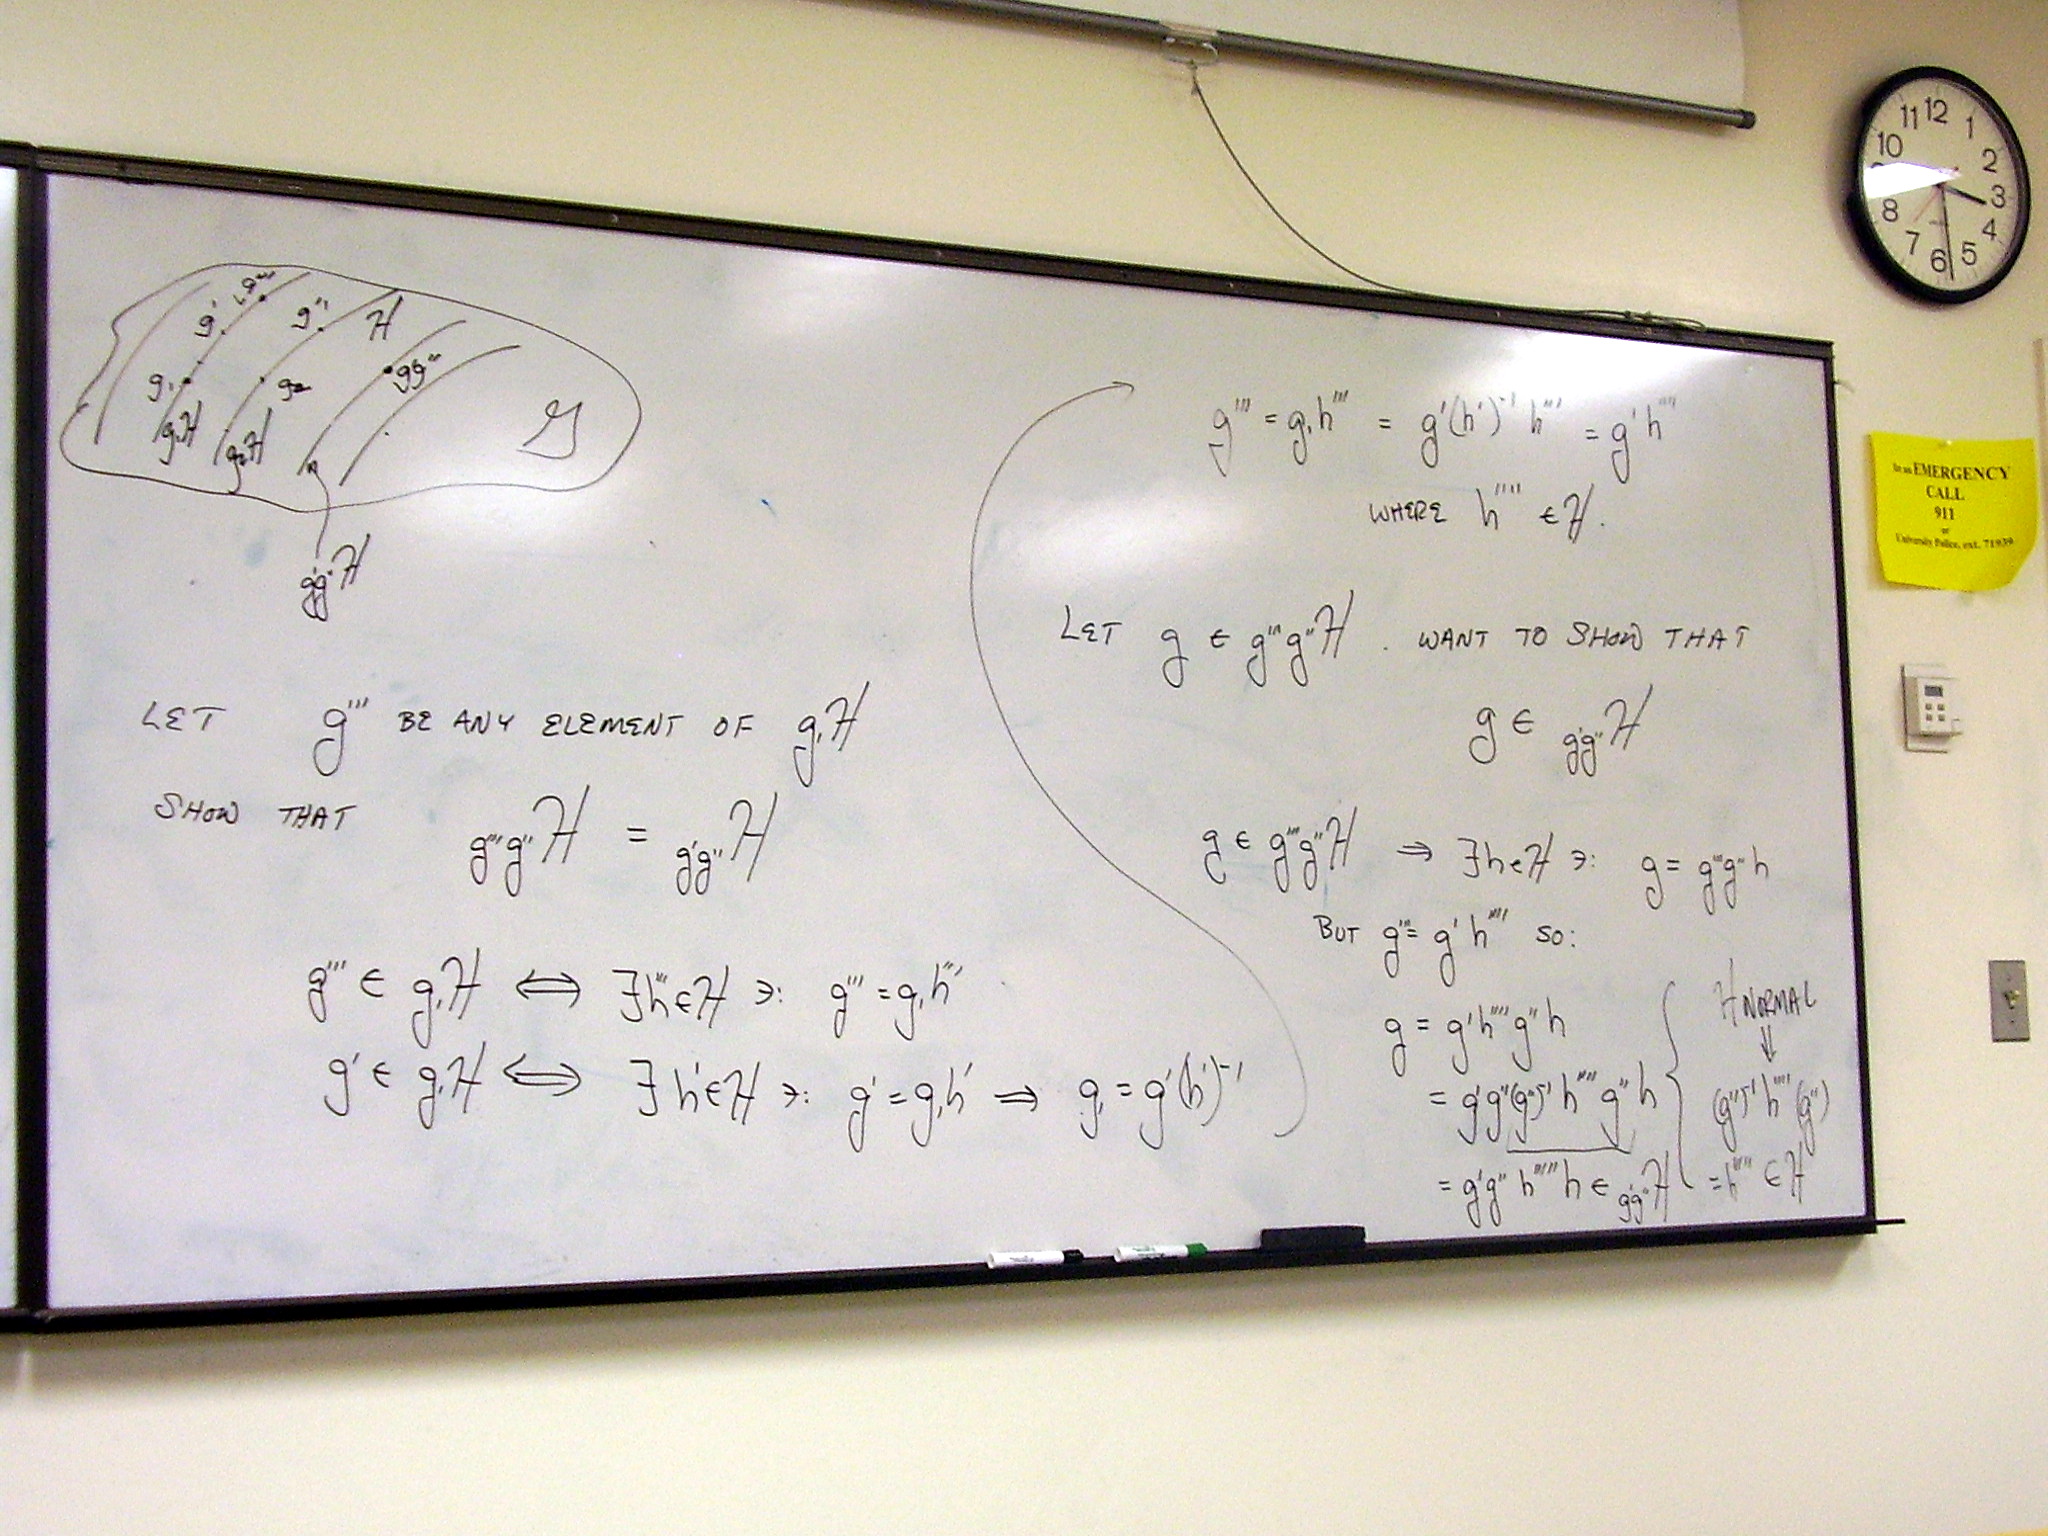 g' g'''
g'' H
g₁ g₂ gg''
g₁H g₂H G
g'g''H
LET g''' BE ANY ELEMENT OF g₁H
SHOW THAT g'''g''H = g'g''H
g''' ∈ g₁H ⇔ ∃h'''∈H ∋: g''' = g₁h'''
g' ∈ g₁H ⇔ ∃h'∈H ∋: g' = g₁h' ⇒ g₁ = g'(h')⁻¹
g''' = g₁h''' = g'(h')⁻¹ h''' = g'h''''
WHERE h'''' ∈ H.
LET g ∈ g'''g''H. WANT TO SHOW THAT
g ∈ g'g''H
g ∈ g'''g''H ⇒ ∃h∈H ∋: g = g'''g''h
BUT g''' = g'h'''' SO:
g = g'h''''g''h
= g'g''(g'')⁻¹h''''g''h
= g'g''h'''''h ∈ g'g''H
H NORMAL
⇓
(g'')⁻¹h''''(g'')
= h''''' ∈ H
11 12 1
10 2
3
8 4
7 6 5
In an EMERGENCY
CALL
911
or
University Police, ext. 71939